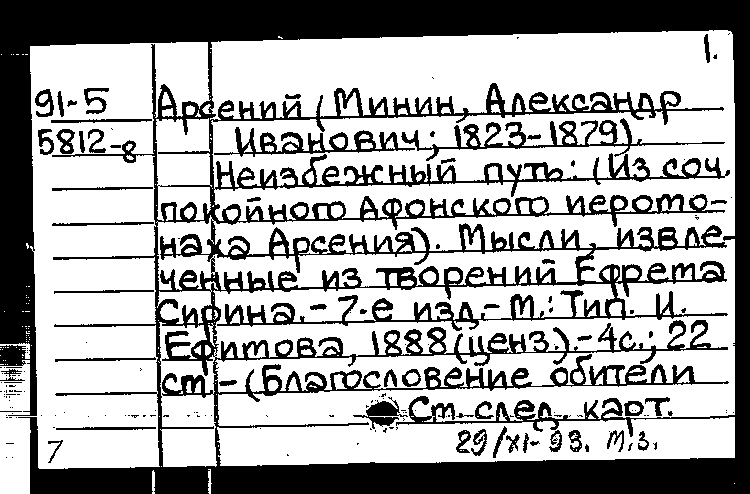 1.
91-5 Арсений (Минин, Александр
5812-8 Иванович; 1823-1879).
Неизбежный путь: (Из соч.
покойного Афонского иерото-
наха Арсения). Мысли, извле-
ченные из творений Ефрета
Сирина.- 7-е изд.- М.: Тип. И.
Ефитова, 1888 (ценз.).- 4с.; 22
ст.- (Благословение обители
Ст. след. карт.
7 29/XI-93. М.з.